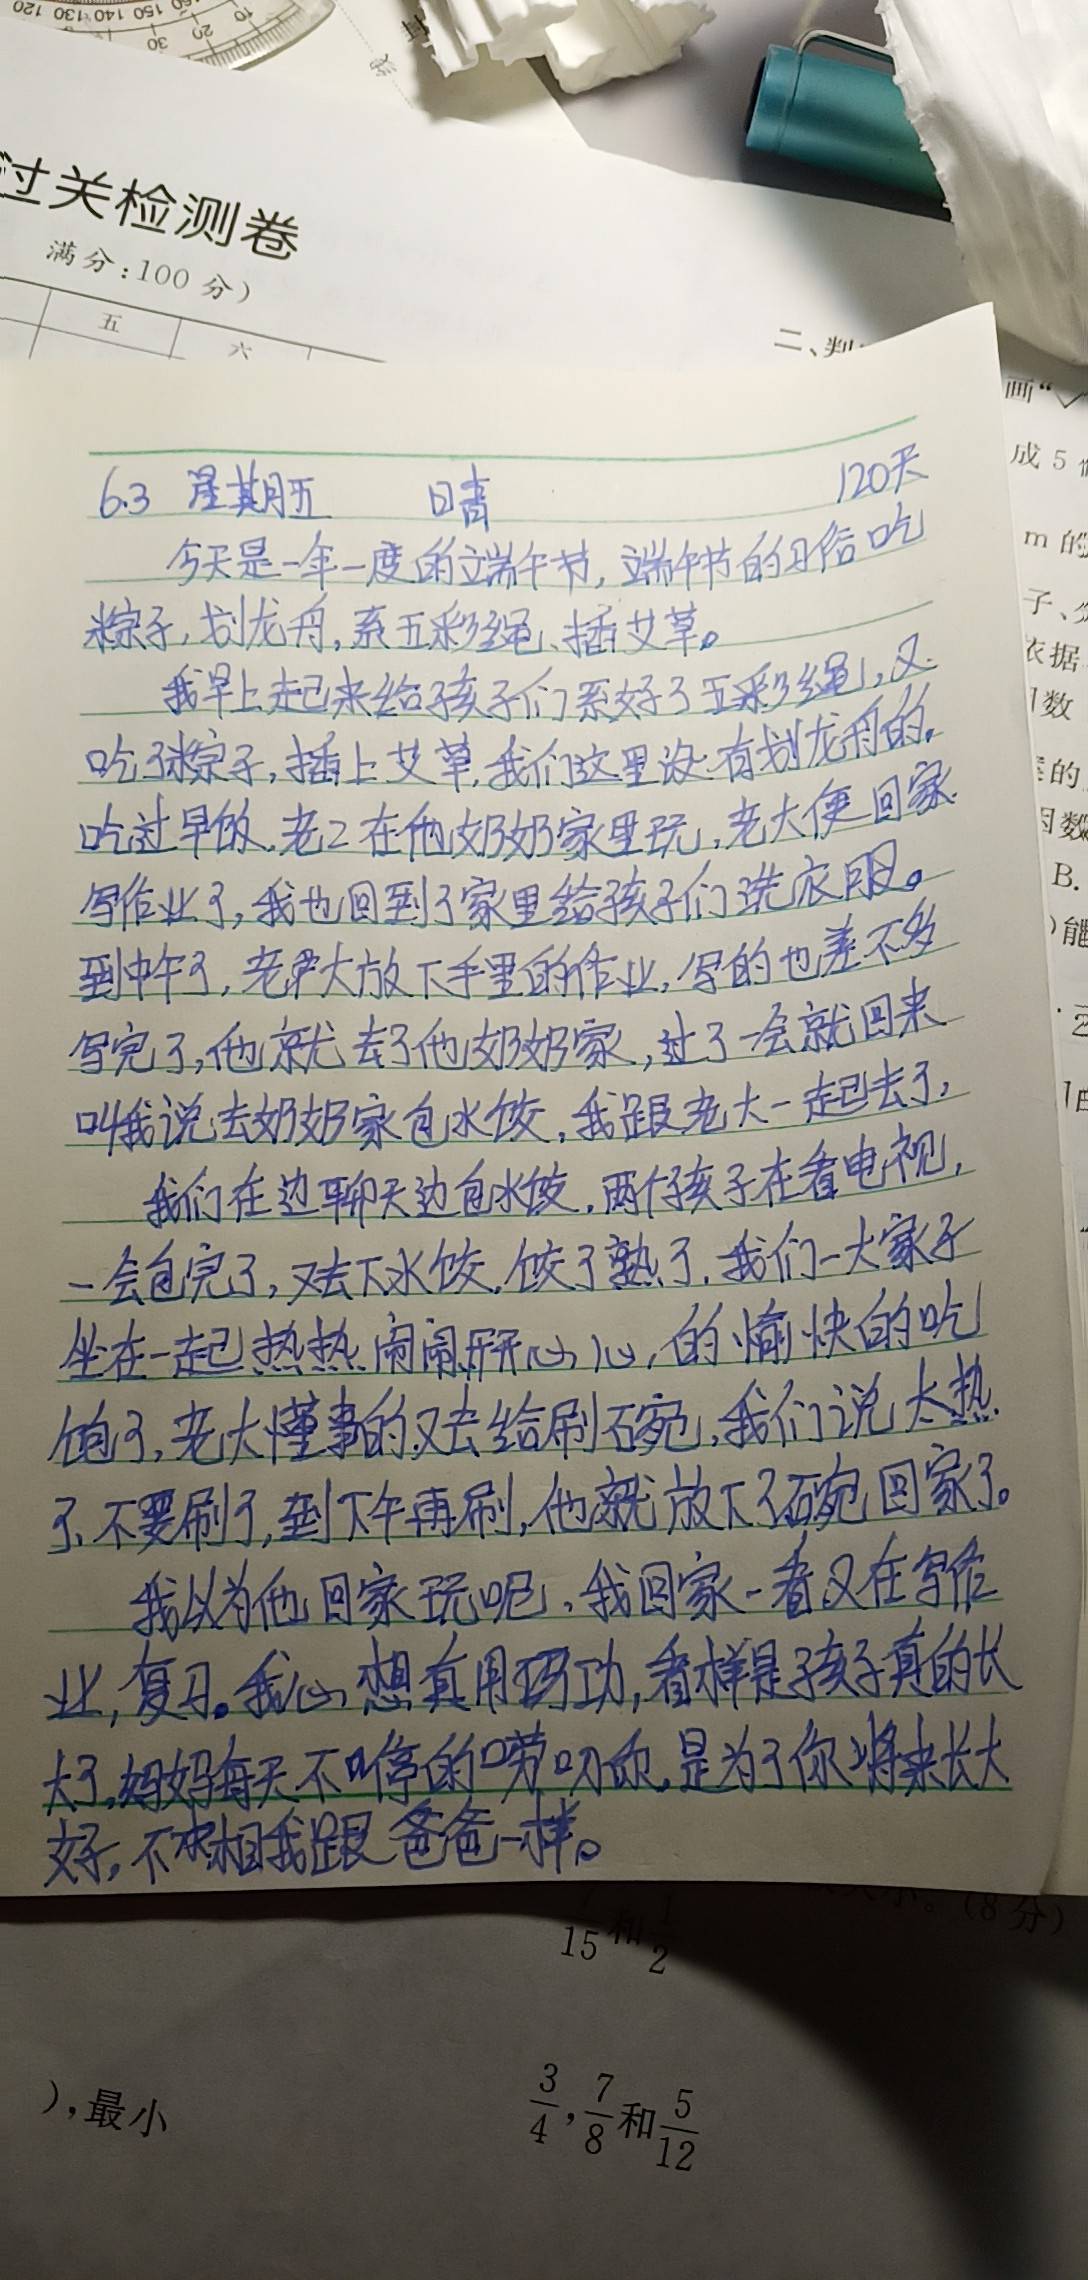 120 130 140 150 160
10 20 30
过关检测卷
满分:100 分)
五
六
二、判
画“✓
成 5
m 的
子、
依据
数
的
因数
B.
)能
6.3 星期五 晴 120天
今天是一年一度的端午节,端午节的习俗吃
粽子,划龙舟,系五彩绳、插艾草。
我早上起来给孩子们系好了五彩绳,又
吃了粽子,插上艾草,我们这里没有划龙舟的。
吃过早饭,老2在他奶奶家里玩,老大便回家
写作业了,我也回到了家里给孩子们洗衣服。
到中午了,老大放下手里的作业,写的也差不多
写完了,他就去了他奶奶家,过了一会就回来
叫我说去奶奶家包水饺,我跟老大一起去了,
我们在边聊天边包水饺,两个孩子在看电视,
一会包完了,又去下水饺,饺了熟了,我们一大家子
坐在一起热热闹闹开开心心,的愉快的吃
饱了,老大懂事的又去给刷碗,我们说太热
了、不要刷了,到下午再刷,他就放下了碗回家了。
我以为他回家玩呢,我回家一看又在写作
业,复习。我心想真用功,看样是孩子真的长
大了,妈妈每天不停的唠叨你,是为了你将来长大
好,不想我跟爸爸一样。
15 和 1/2
(8分)
),最小
3/4,7/8和5/12